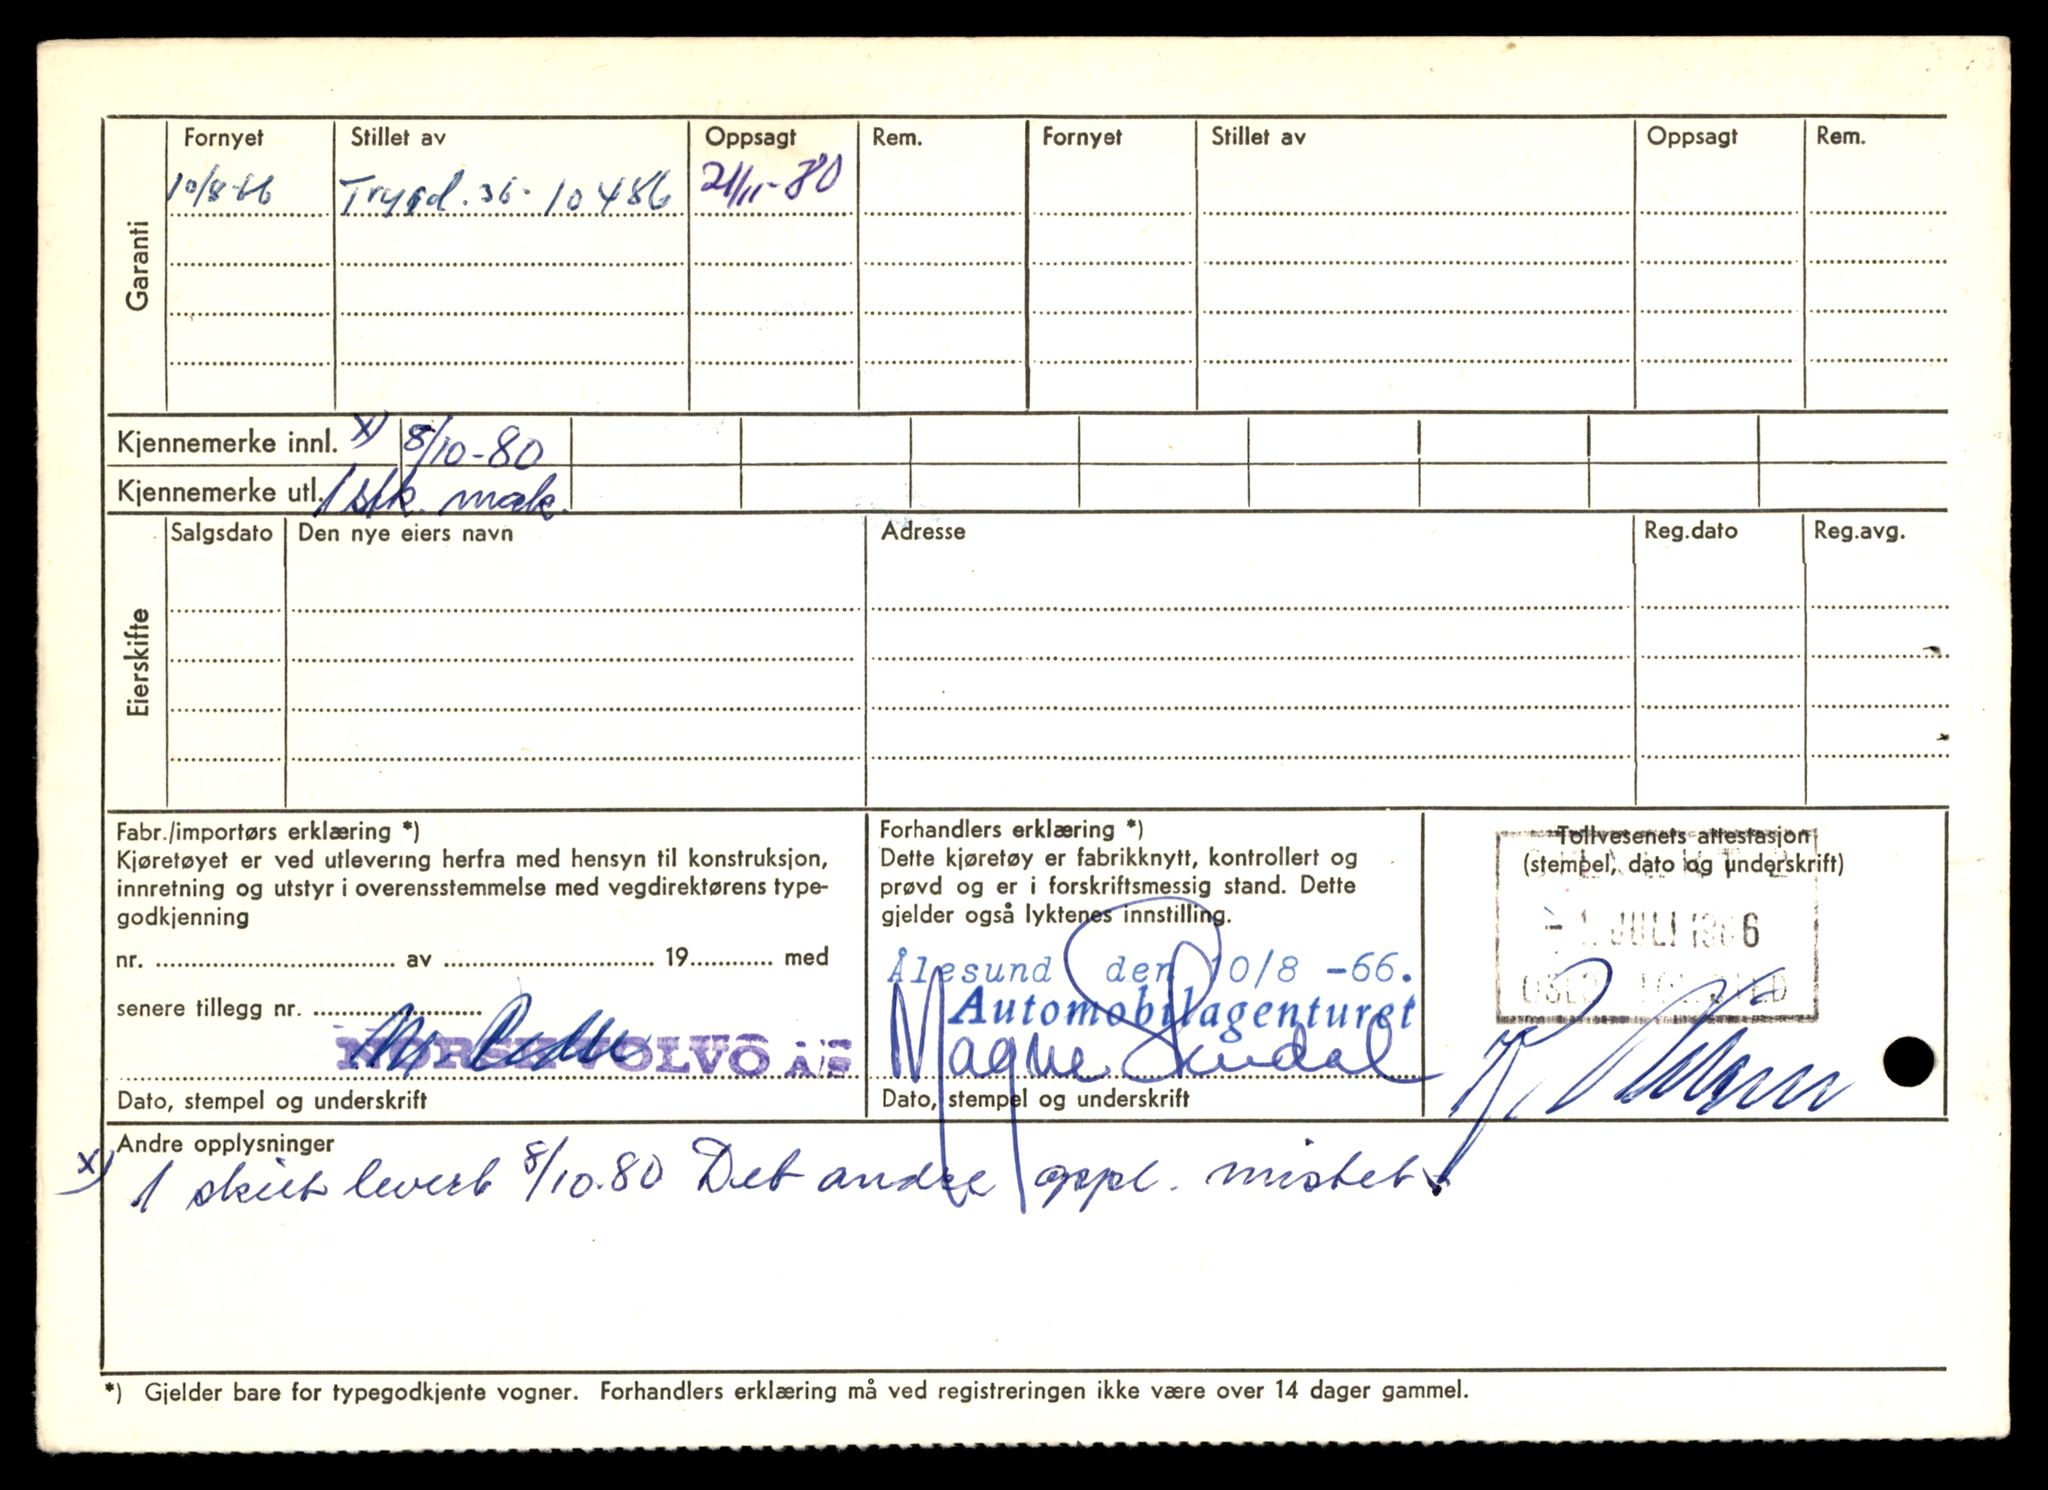 Garanti
Fornyet Stillet av Oppsagt Rem. Fornyet Stillet av Oppsagt Rem.
10/8-66 Trygd. 36- 10486 21/11-80
Kjennemerke innl. x) 8/10-80
Kjennemerke utl. 1 stk. mrk.
Eierskifte
Salgsdato Den nye eiers navn Adresse Reg.dato Reg.avg.
Fabr./importørs erklæring *)
Kjøretøyet er ved utlevering herfra med hensyn til konstruksjon,
innretning og utstyr i overensstemmelse med vegdirektørens type-
godkjenning
nr. av 19 med
senere tillegg nr.
NORSK VOLVO A/S
Dato, stempel og underskrift
Forhandlers erklæring *)
Dette kjøretøy er fabrikknytt, kontrollert og
prøvd og er i forskriftsmessig stand. Dette
gjelder også lyktenes innstilling.
Ålesund den 10/8 -66.
Automobilagenturet
Magne
Dato, stempel og underskrift
Tollvesenets attestasjon
(stempel, dato og underskrift)
-1. JULI 1966
Andre opplysninger
x) 1 skilt levert 8/10.80 Det andre oppl. mistet.
*) Gjelder bare for typegodkjente vogner. Forhandlers erklæring må ved registreringen ikke være over 14 dager gammel.